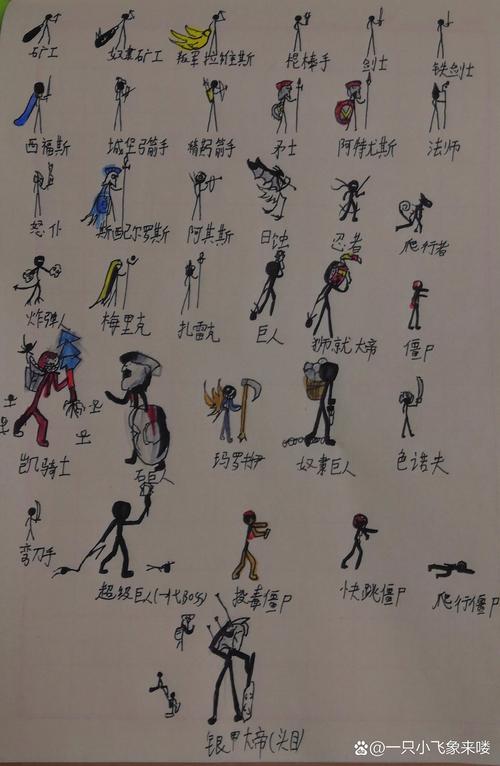 矿工 奴隶矿工 叛军拉维斯 棍棒手 剑士 铁剑士
西福斯 城堡弓箭手 精弓箭手 矛士 阿特尤斯 法师
怒仆 斯西尔罗斯 阿其斯 日蚀 忍者 爬行者
炸弹人 梅里克 扎雷克 巨人 狮就大帝 僵尸
凯骑士 石巨人 玛罗特伊 奴隶巨人 色诺夫
弯刀手 超级巨人(一代BOSS) 投毒僵尸 快跳僵尸 爬行僵尸
银甲大帝(头目)
@一只小飞象来喽